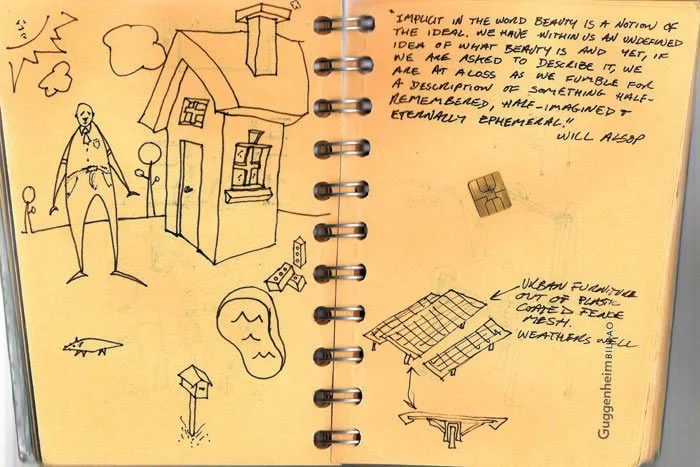 "IMPLICIT IN THE WORD BEAUTY IS A NOTION OF
THE IDEAL. WE HAVE WITHIN US AN UNDEFINED
IDEA OF WHAT BEAUTY IS AND YET, IF
WE ARE ASKED TO DESCRIBE IT, WE
ARE AT A LOSS AS WE FUMBLE FOR
A DESCRIPTION OF SOMETHING HALF-
REMEMBERED, HALF-IMAGINED &
ETERNALLY EPHEMERAL."
WILL ALSOP
URBAN FURNITURE
OUT OF PLASTIC
COATED FENCE
MESH.
WEATHERS WELL
Guggenheim BILBAO